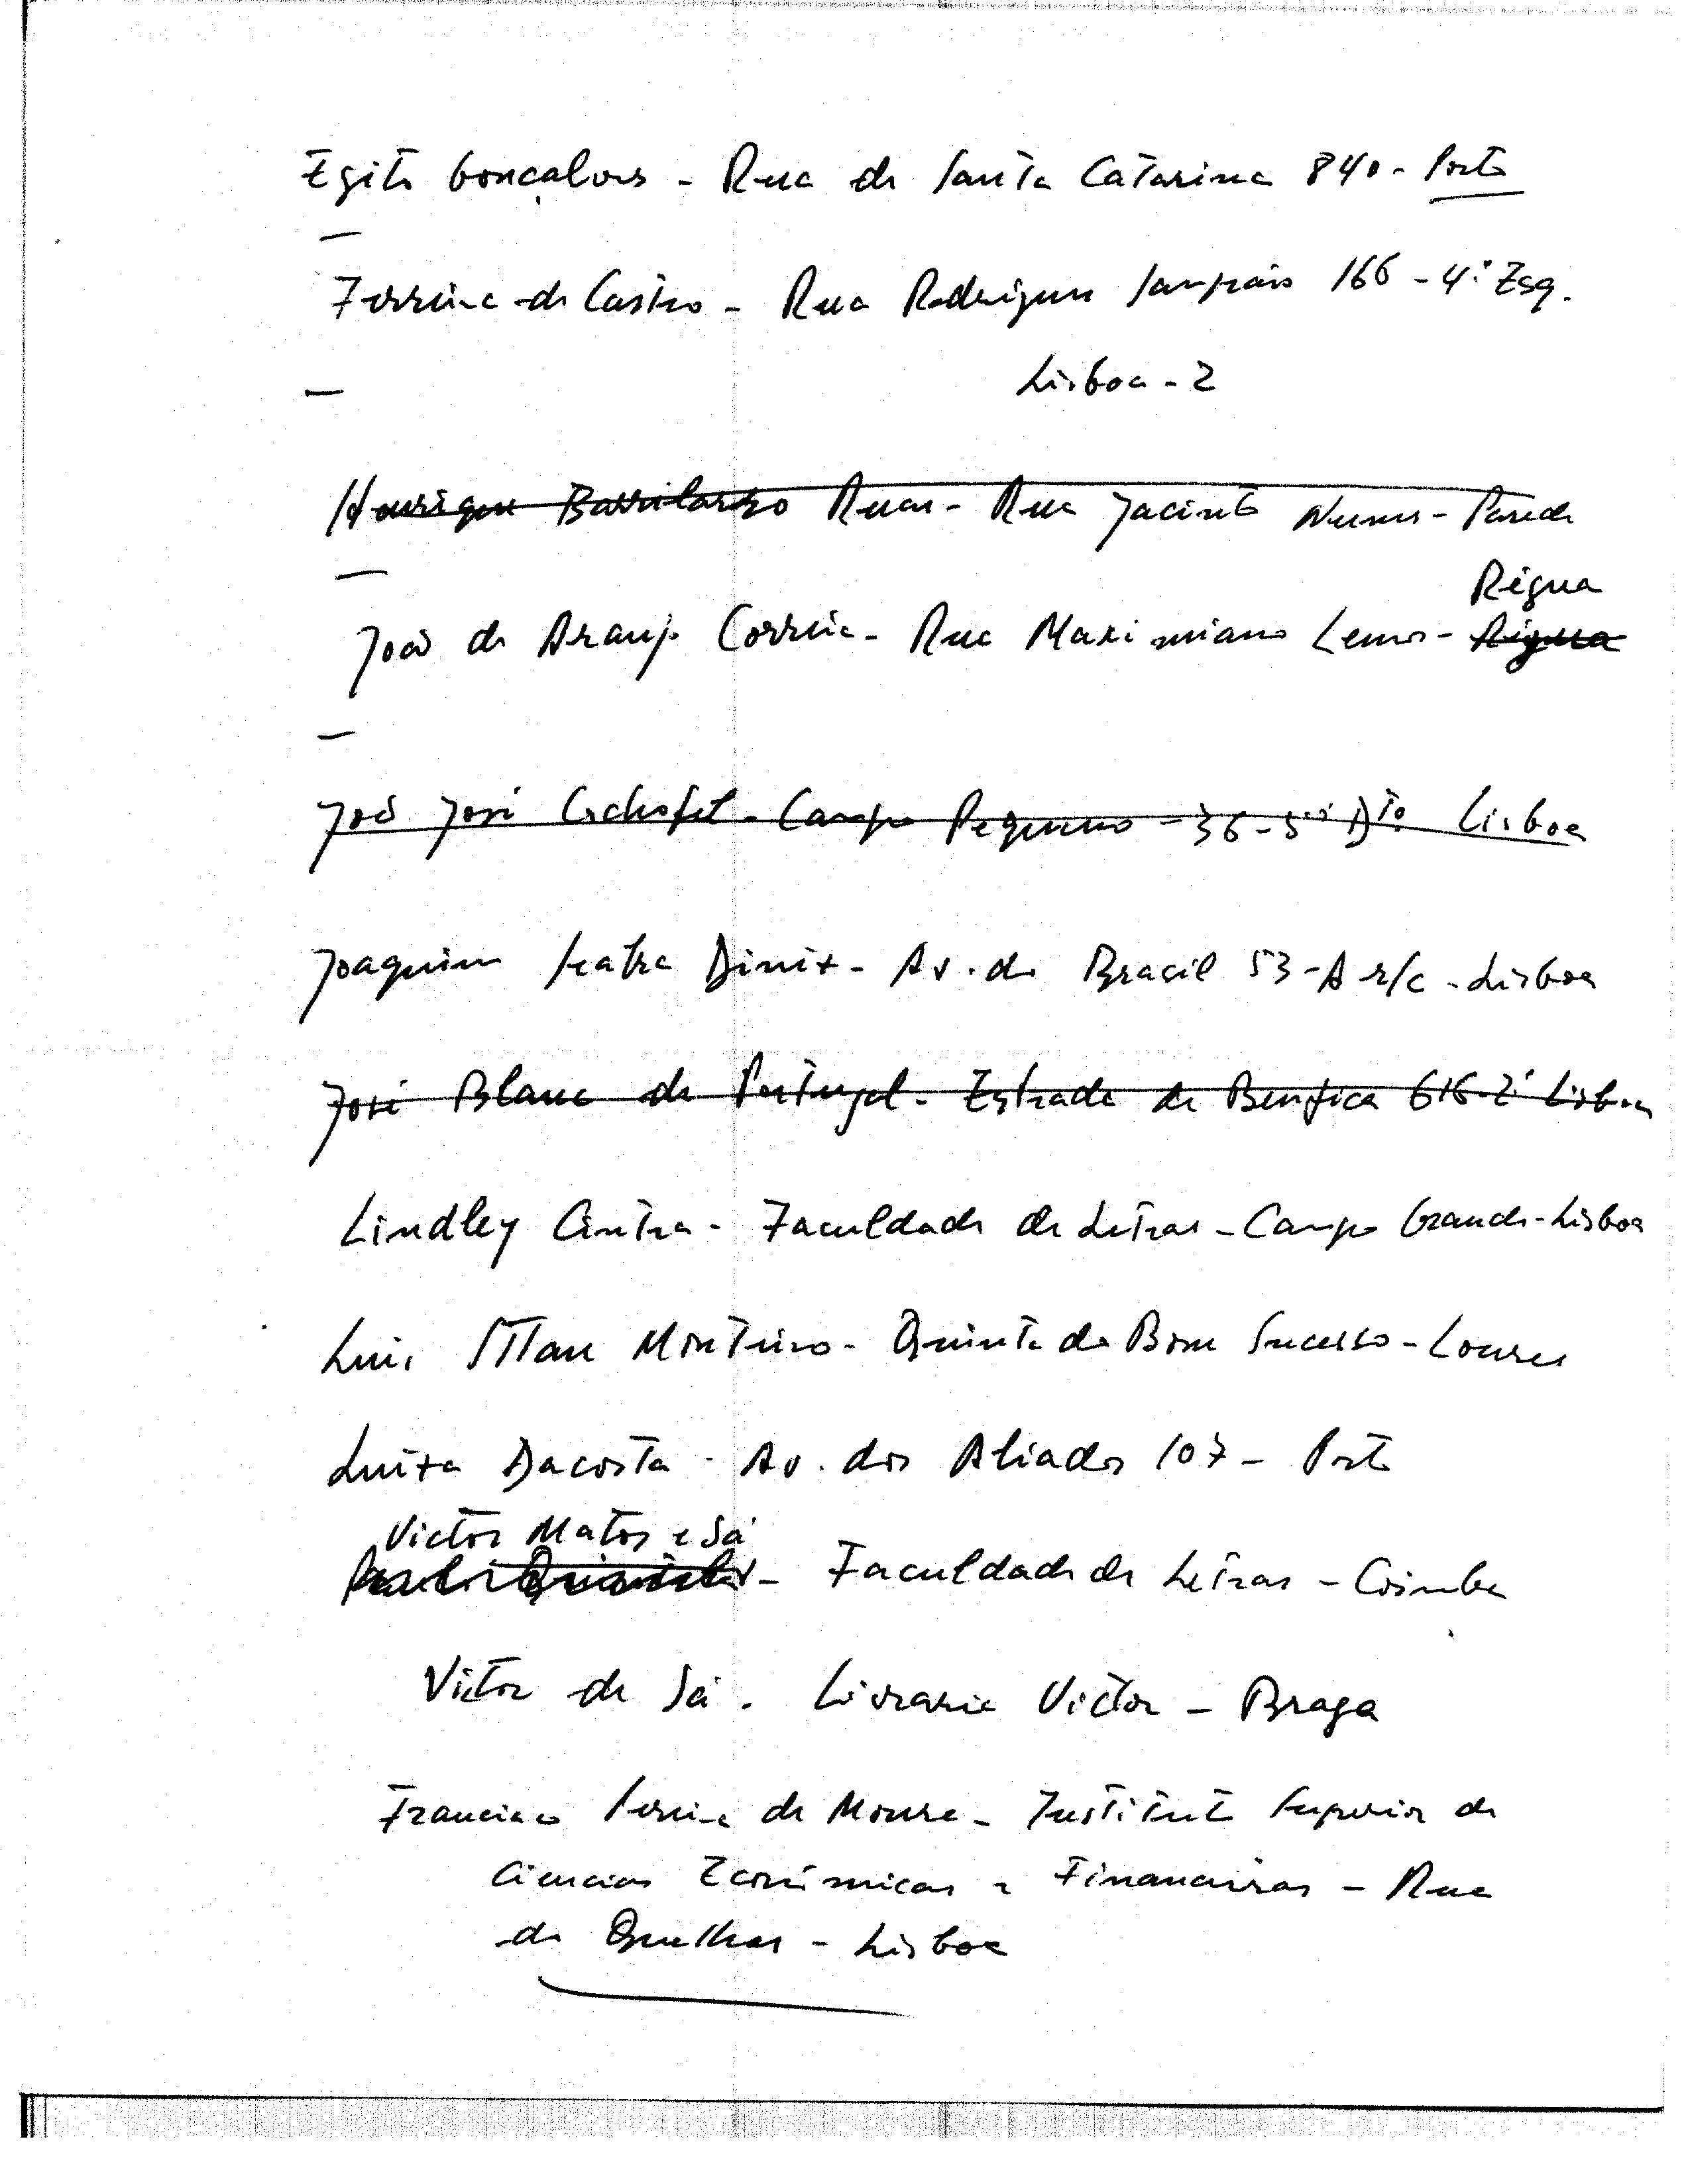 Egito Gonçalves - Rua de Santa Catarina 840 - Porto
Ferreira de Castro - Rua Rodrigues Sampaio 166 - 4º Esq.
Lisboa - 2
Henrique Barrilaro Ruas - Rua Jacinto Nunes - Parede
Régua
João de Araujo Correia - Rua Maximiano Lemos - Régua
João José Cochofel - Campo Pequeno - 36 - 5º Dto. Lisboa
Joaquim Seabra Diniz - Av. do Brasil 53-A r/c - Lisboa
José Blanc de Portugal - Estrada de Benfica 616-2º Lisboa
Lindley Cintra - Faculdade de Letras - Campo Grande - Lisboa
Luis Sttau Monteiro - Quinta do Bom Sucesso - Loures
Luiza Dacosta - Av. dos Aliados 107 - Porto
Victor Matos e Sá
Paulo Quintela - Faculdade de Letras - Coimbra
Victor de Sá - Livraria Victor - Braga
Francisco Pereira de Moura - Instituto Superior de
Ciencias Económicas e Financeiras - Rua
do Quelhas - Lisboa